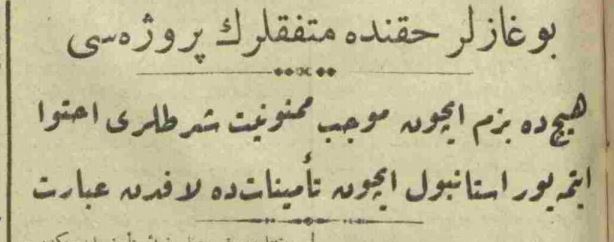 بوغازلر حقنده متفقلرك پروژه‌سی
هیچ ده بزم ایچون موجب ممنونیت شرطلری احتوا
ایتمه‌یور استانبول ایچون تأمینات ده لافدن عبارت